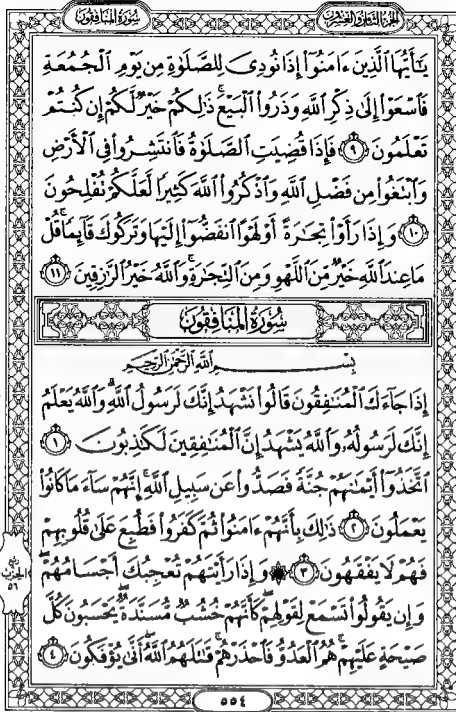 سورة المنافقون
الجزء الثامن والعشرون
يَٰٓأَيُّهَا ٱلَّذِينَ ءَامَنُوٓا۟ إِذَا نُودِىَ لِلصَّلَوٰةِ مِن يَوْمِ ٱلْجُمُعَةِ
فَٱسْعَوْا۟ إِلَىٰ ذِكْرِ ٱللَّهِ وَذَرُوا۟ ٱلْبَيْعَ ۚ ذَٰلِكُمْ خَيْرٌ لَّكُمْ إِن كُنتُمْ
تَعْلَمُونَ ٩ فَإِذَا قُضِيَتِ ٱلصَّلَوٰةُ فَٱنتَشِرُوا۟ فِى ٱلْأَرْضِ
وَٱبْتَغُوا۟ مِن فَضْلِ ٱللَّهِ وَٱذْكُرُوا۟ ٱللَّهَ كَثِيرًا لَّعَلَّكُمْ تُفْلِحُونَ
١٠ وَإِذَا رَأَوْا۟ تِجَٰرَةً أَوْ لَهْوًا ٱنفَضُّوٓا۟ إِلَيْهَا وَتَرَكُوكَ قَآئِمًا ۚ قُلْ
مَا عِندَ ٱللَّهِ خَيْرٌ مِّنَ ٱللَّهْوِ وَمِنَ ٱلتِّجَٰرَةِ ۚ وَٱللَّهُ خَيْرُ ٱلرَّٰزِقِينَ ١١
سُورَةُ المُنَافِقُونَ
بِسْمِ ٱللَّهِ ٱلرَّحْمَٰنِ ٱلرَّحِيمِ
إِذَا جَآءَكَ ٱلْمُنَٰفِقُونَ قَالُوا۟ نَشْهَدُ إِنَّكَ لَرَسُولُ ٱللَّهِ ۗ وَٱللَّهُ يَعْلَمُ
إِنَّكَ لَرَسُولُهُۥ وَٱللَّهُ يَشْهَدُ إِنَّ ٱلْمُنَٰفِقِينَ لَكَٰذِبُونَ ١
ٱتَّخَذُوٓا۟ أَيْمَٰنَهُمْ جُنَّةً فَصَدُّوا۟ عَن سَبِيلِ ٱللَّهِ ۚ إِنَّهُمْ سَآءَ مَا كَانُوا۟
يَعْمَلُونَ ٢ ذَٰلِكَ بِأَنَّهُمْ ءَامَنُوا۟ ثُمَّ كَفَرُوا۟ فَطُبِعَ عَلَىٰ قُلُوبِهِمْ
فَهُمْ لَا يَفْقَهُونَ ٣ ۞ وَإِذَا رَأَيْتَهُمْ تُعْجِبُكَ أَجْسَامُهُمْ ۖ
وَإِن يَقُولُوا۟ تَسْمَعْ لِقَوْلِهِمْ ۖ كَأَنَّهُمْ خُشُبٌ مُّسَنَّدَةٌ ۖ يَحْسَبُونَ كُلَّ
صَيْحَةٍ عَلَيْهِمْ ۚ هُمُ ٱلْعَدُوُّ فَٱحْذَرْهُمْ ۚ قَٰتَلَهُمُ ٱللَّهُ ۖ أَنَّىٰ يُؤْفَكُونَ ٤
الحزب
٥٦
٥٥٤